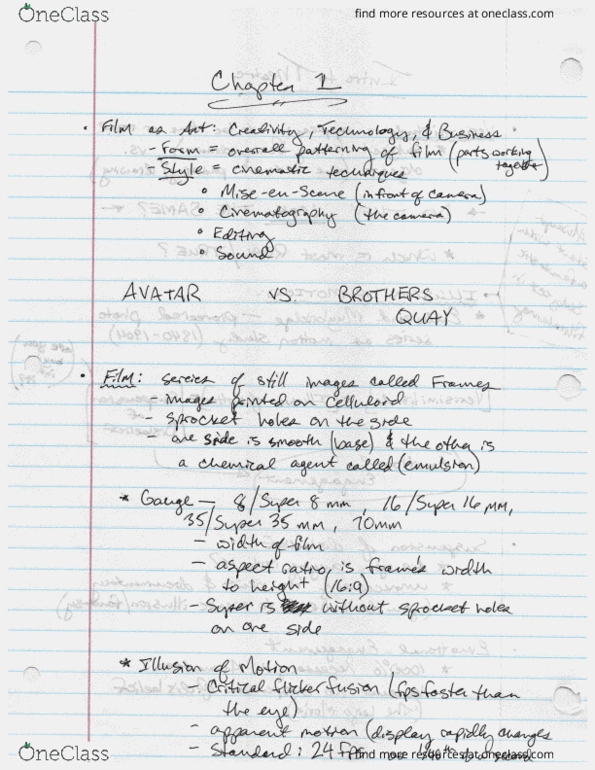 OneClass
find more resources at oneclass.com
Chapter 1
• Film as Art: Creativity, Technology, & Business
- Form = overall patterning of film (parts working together)
Style = cinematic techniques
• Mise-en-Scene (infront of camera)
• Cinematography (the camera)
• Editing
• Sound
AVATAR VS. BROTHERS
QUAY
• Film: sereies of still images called Frames
- images printed on celluloid
- sprocket holes on the side
- one side is smooth (base) & the other is
a chemical agent called (emulsion)
* Gauge — 8/Super 8 mm, 16/Super 16 mm,
35/Super 35 mm, 70mm
- width of film
- aspect ratio, is frames width
to height (16:9)
- Super is without sprocket holes
on one side
* Illusion of Motion
- Critical flicker fusion (fps faster than
the eye)
- apparent motion (display rapidly changes
- Standard: 24 fps
OneClass
find more resources at oneclass.com